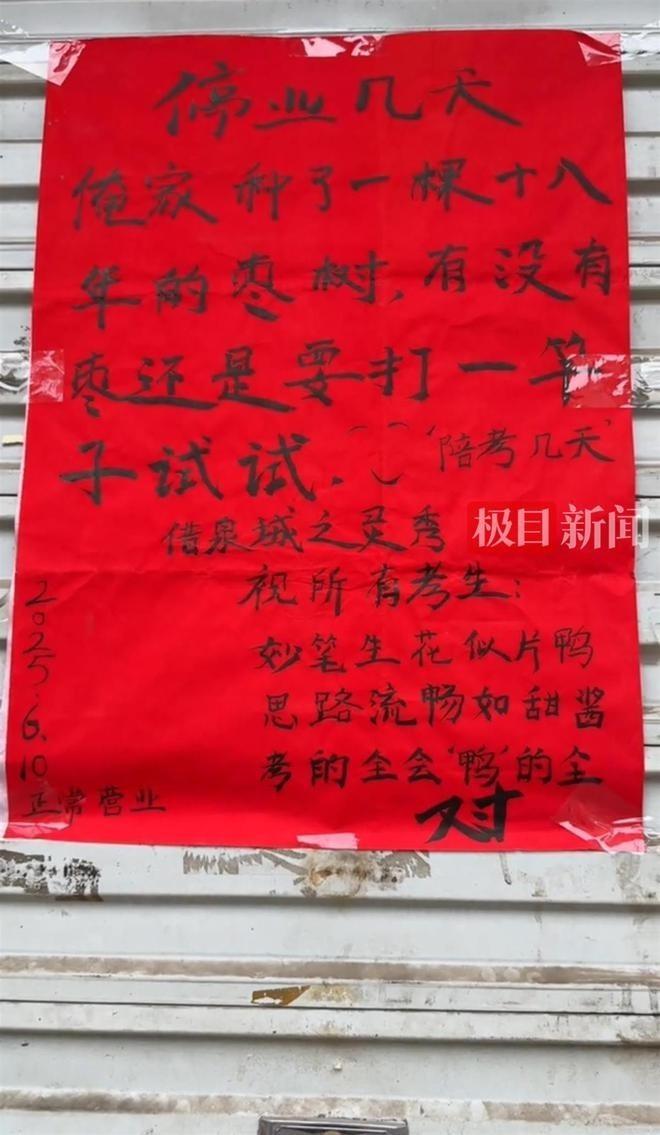 停业几天
俺家种了一棵十八
年的枣树,有没有
枣还是要打一竿
子试试.
'陪考几天'
极目新闻
借泉城之灵秀
视所有考生:
妙笔生花似片鸭
思路流畅如甜酱
考的全会'鸭'的全
对
2025.6.10
正常营业